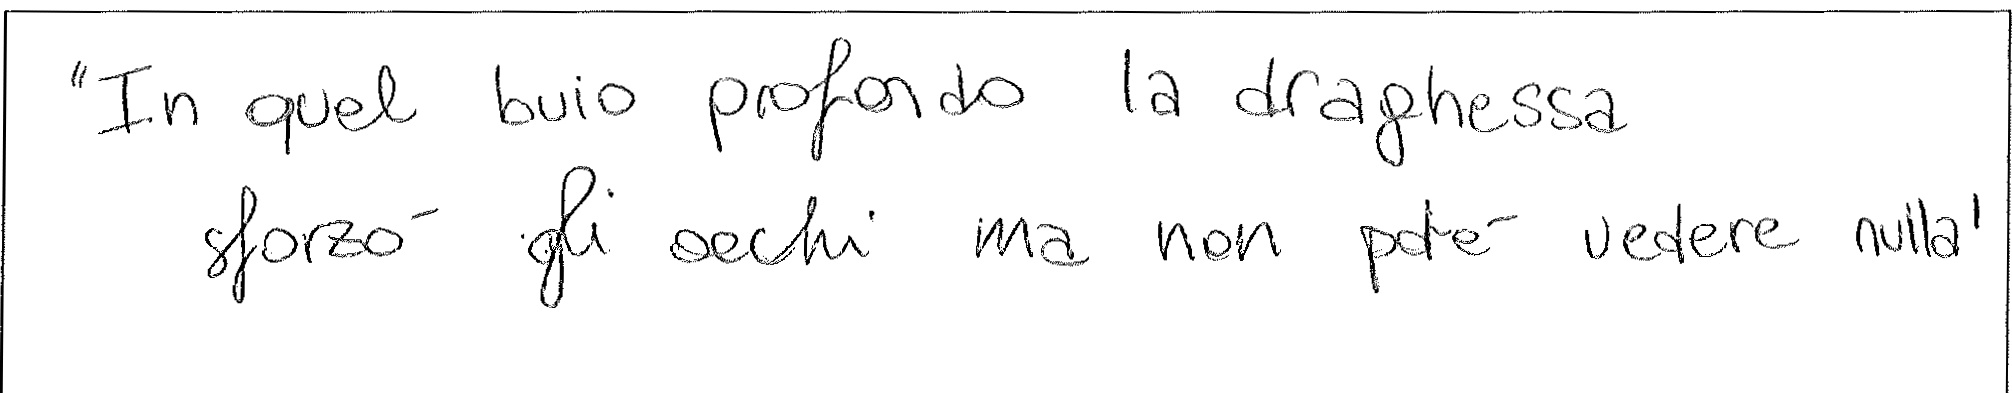 "In quel buio profondo la draghessa
sforzò gli occhi ma non poté vedere nulla'